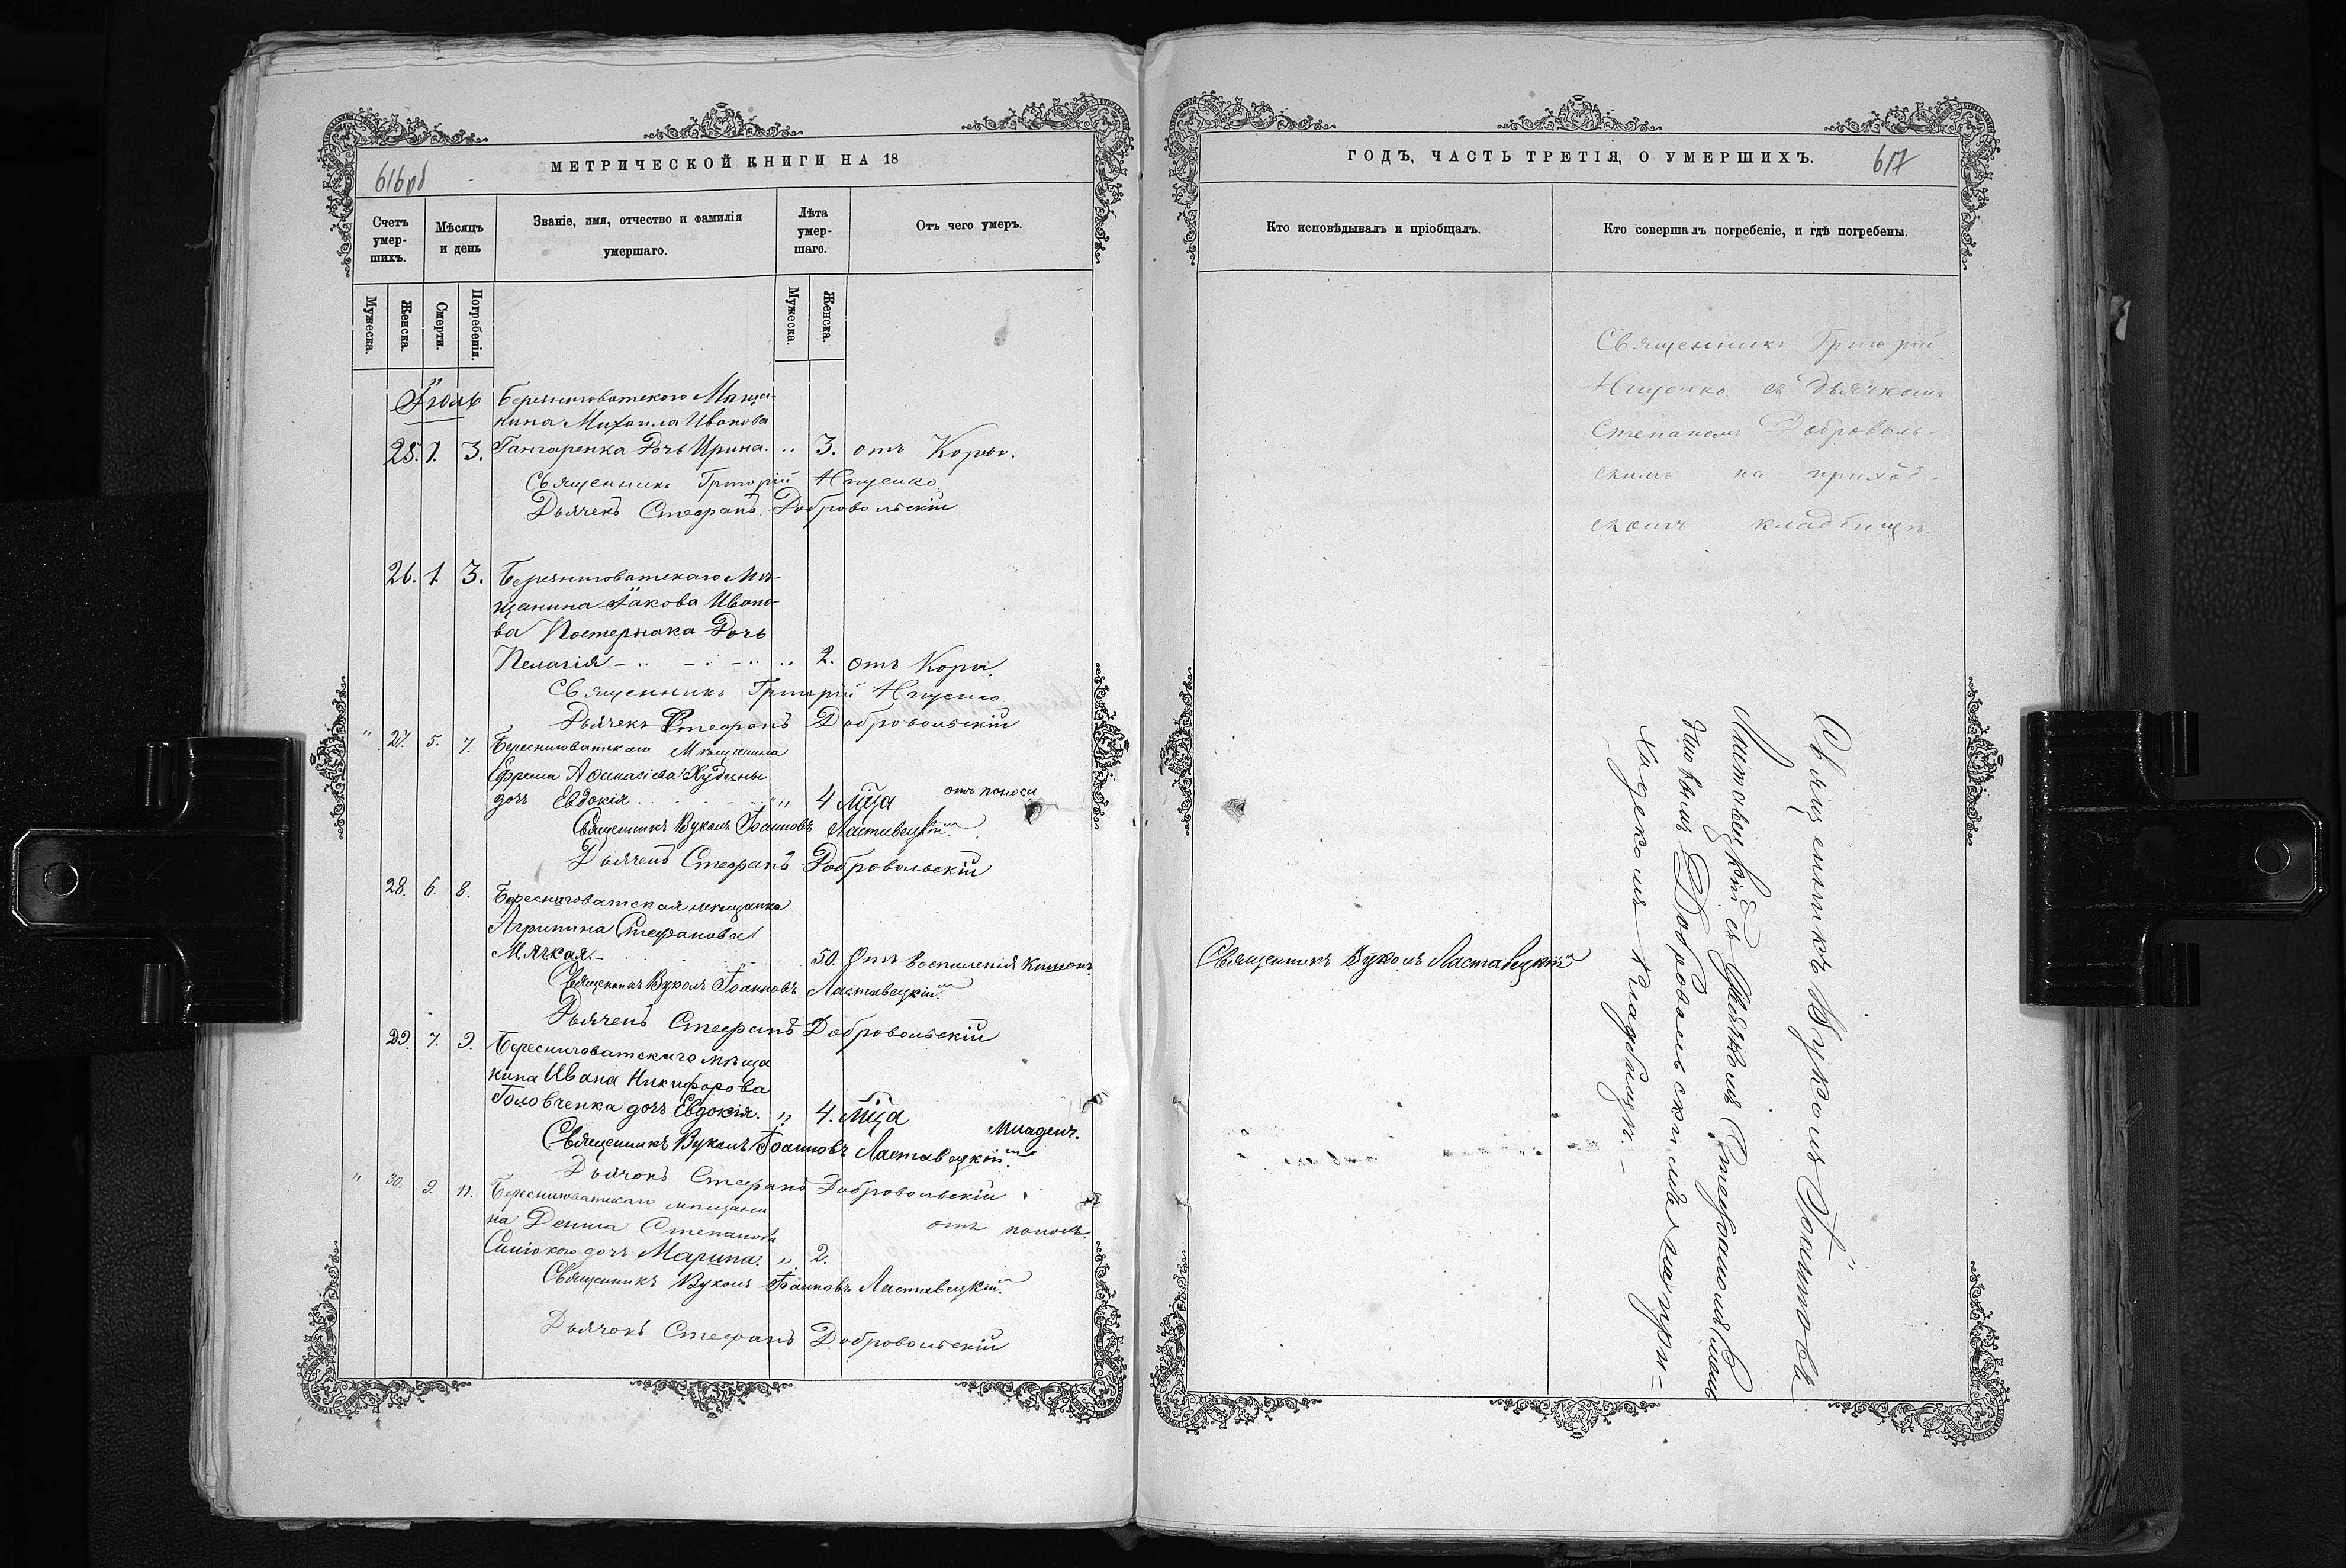 МЕТРИЧЕСКОЙ КНИГИ НА 18
616об
Счетъ умер-шихъ.
Мѣсяцъ и день
Званіе, имя, отчество и фамилія умершаго.
Лѣта умер-шаго.
Отъ чего умеръ.
Мужеска.
Женска.
Смерти.
Погребенія.
Мужеска.
Женска.
Іюль
Береснеговатского Мѣща-
нина Михаила Иванова
25. 1. 3. Гангаренка Дочь Ирина. 3. отъ Кори.
Священникъ Григорій Нищенко
Дьячекъ Стефанъ Добровольскій
26. 1. 3. Береснеговатскаго Мѣ-
щанина Іакова Ивано-
ва Постернака Дочь
Пелагія 2. отъ Кори.
Священникъ Григорій Нищенко
Дьячекъ Стефанъ Добровольскій
" 27. 5. 7. Береснеговатскаго Мѣщанина
Ефрема Афанасіева Худины
дочь Евдокія " 4 мѣца отъ поноса
Священникъ Вуколъ Іоанновъ Ластавецкій
Дьячекъ Стефанъ Добровольскій
28. 6. 8. Береснеговатская мѣщанка
Агрипина Стефанова
Мягкая 50. Отъ воспаленія
Священникъ Вуколъ Іоанновъ Ластавецкій
Дьячекъ Стефанъ Добровольскій
29. 7. 9. Береснеговатскаго мѣща
нина Ивана Никифорова
Головченка дочь Евдокія. " 4. мѣца Младенч.
Священникъ Вуколъ Іоанновъ Ластавецкій
Дьячокъ Стефанъ Добровольскій
" 30. 9. 11. Береснеговатскаго мѣщани
на Дениса Степанова
дочь Марина. " 2. отъ поноса.
Священникъ Вуколъ Іоанновъ Ластавецкій
Дьячокъ Стефанъ Добровольскій
ГОДЪ, ЧАСТЬ ТРЕТІЯ, О УМЕРШИХЪ.
617
Кто исповѣдывалъ и пріобщалъ.
Кто совершалъ погребеніе, и гдѣ погребены.
Священникъ Григорій
Нищенко съ Дьячкомъ
Степаномъ Доброволь-
скимъ на приход-
скомъ кладбищѣ.
Священникъ Вуколъ Ластавецкій
Священникъ Вуколъ Іоанновъ
Ластовецкій съ Дьячкомъ Стефаномъ
Добровольскимъ на при=
ходскомъ кладбищѣ.